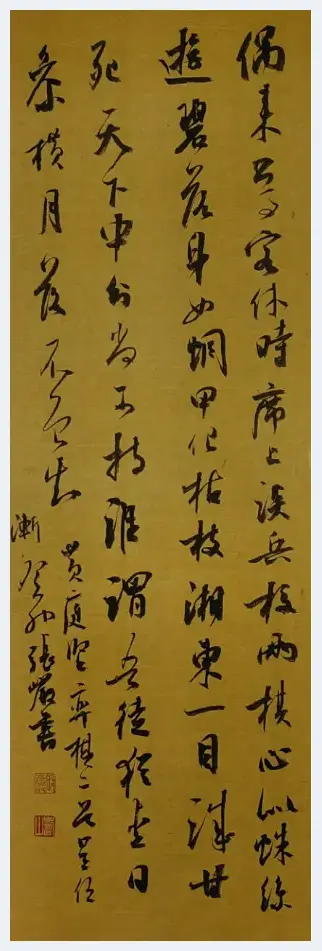 偶来公事客休時席上談兵校兩棋心似蛛絲
遊碧落身如蜩甲化枯枝湘東一目誠甘
死天下中分尚可持誰謂吾徒猶愛日
參横月落不曾知
黄庭堅弈棋二首呈任
漸癸卯張書